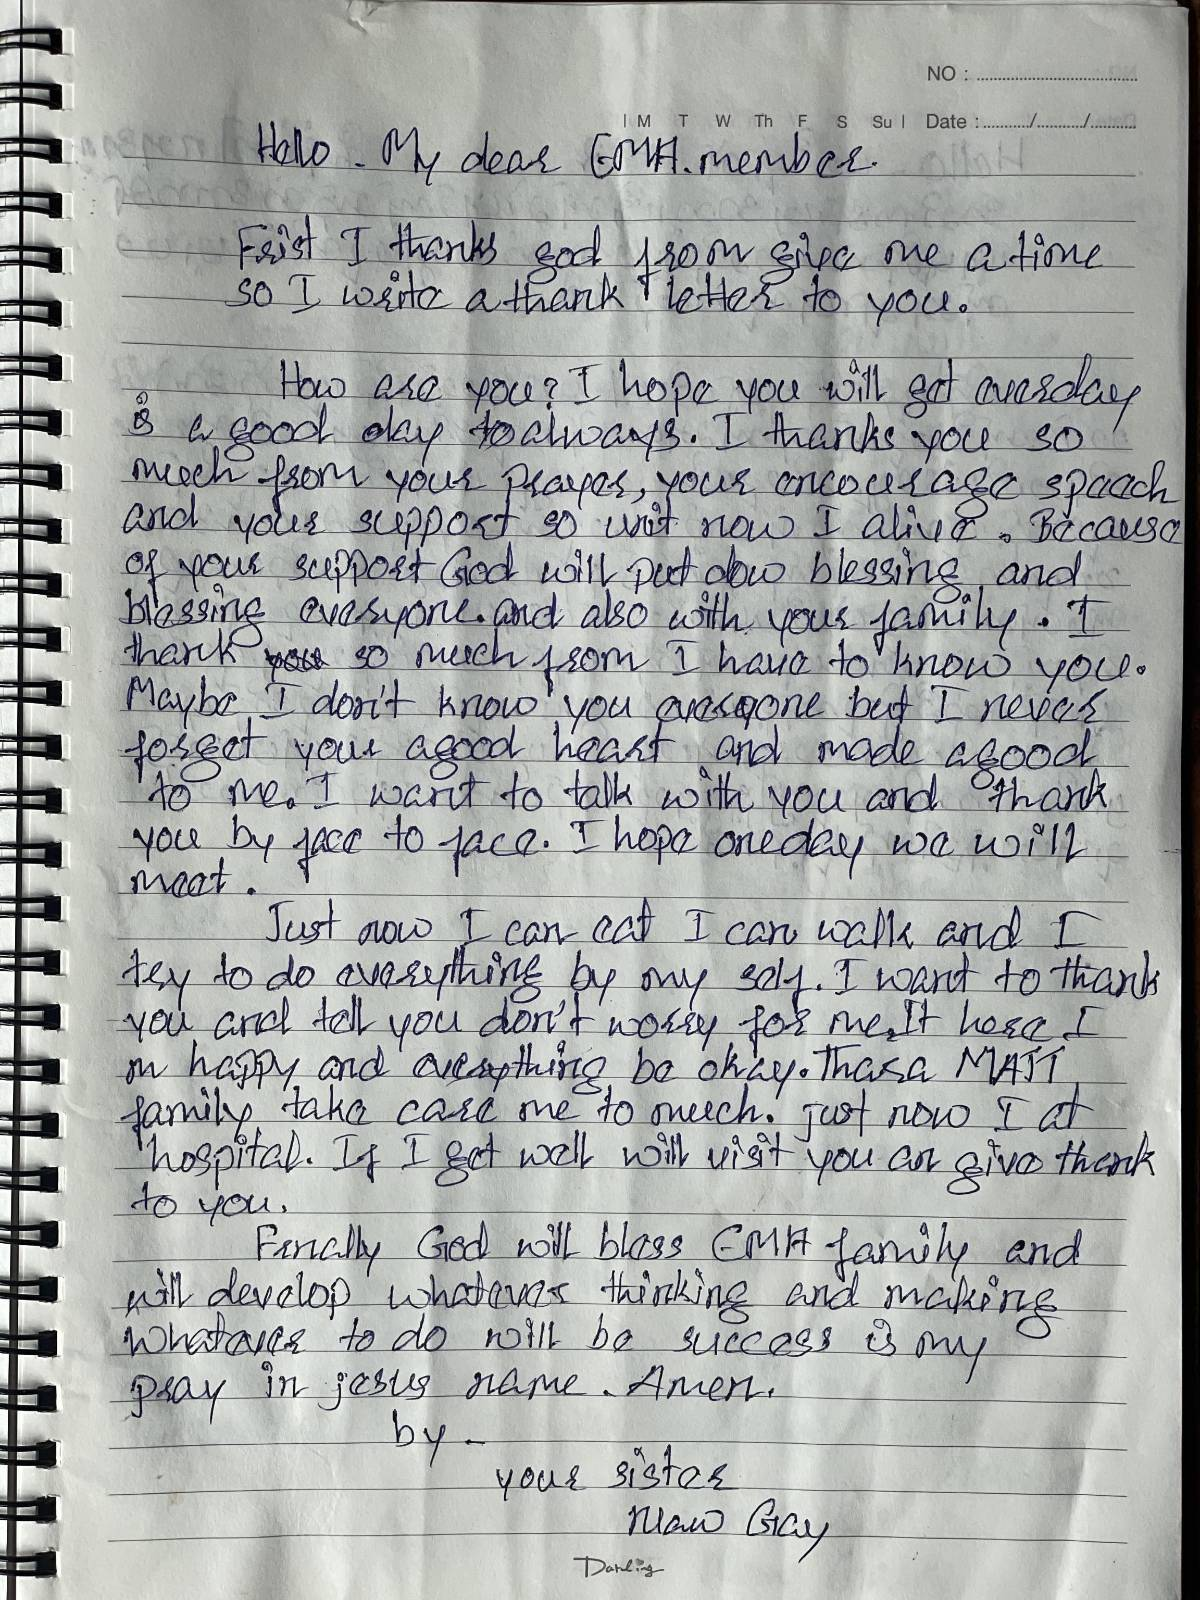 NO :
M T W Th F S Su Date : / /
Hello. My dear GMA. member.
Frist I thanks god from give me a time
so I write a thank letter to you.
How are you? I hope you will get everday
is a good day to always. I thanks you so
much from your prayer, your encourage speach
and your support so unit now I alive. Because
of your support God will put dow blessing and
blessing everyone. and also with your family. I
thank you so much from I have to know you.
Maybe I don't know you everyone but I never
forget your agood heart and made agood
to me. I want to talk with you and thank
you by face to face. I hope oneday we will
meet.
Just now I can eat I can walk and I
try to do everything by my self. I want to thank
you and tell you don't worry for me. It here I
m happy and everything be okay. Thara MATT
family take care me to much. just now I at
hospital. If I get well will visit you an give thank
to you.
Finally God will bless GMA family and
will develop whatever thinking and making
whatever to do will be success is my
pray in jesus name. Amen.
by -
your sister
Maw Gay
Darling